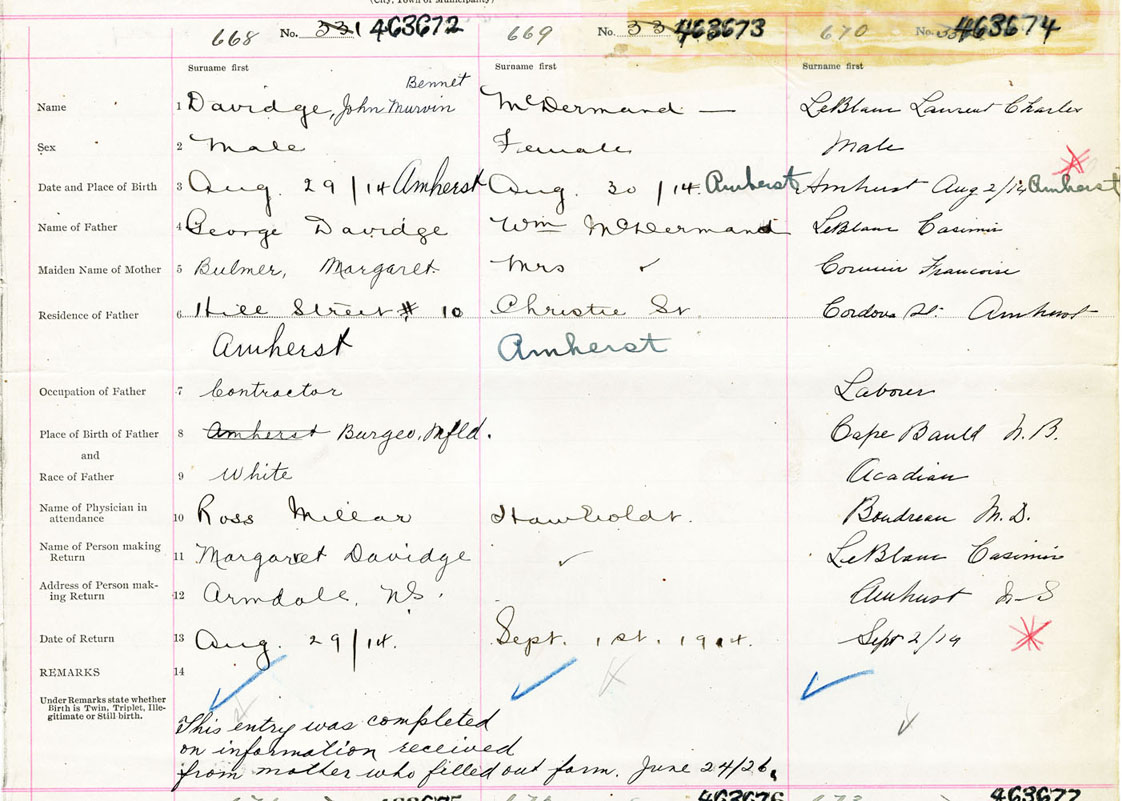 (City, Town or Municipality)
668 No. 331 463672 669 No. 33 463673 670 No. 463674
Surname first Surname first Surname first
Bennet
Name 1 Davidge, John Murvin McDermand — LeBlanc Laurent Charles
Sex 2 Male Female Male
Date and Place of Birth 3 Aug. 29/14 Amherst Aug. 30/14 Amherst Amherst Aug 2/14 Amherst
Name of Father 4 George Davidge Wm McDermand LeBlanc Casimir
Maiden Name of Mother 5 Bulmer, Margaret Mrs ✓ Cormier Francoise
Residence of Father 6 Hill Street # 10 Christie St. Cordova St. Amherst
Amherst Amherst
Occupation of Father 7 Contractor Labour
Place of Birth of Father 8 Amherst Burgeo, Nfld. Cape Bauld N.B.
and
Race of Father 9 White Acadian
Name of Physician in
attendance 10 Ross Millar Boudreau M.D.
Name of Person making
Return 11 Margaret Davidge ✓ LeBlanc Casimir
Address of Person mak-
ing Return 12 Armdale, NS. Amherst N-S
Date of Return 13 Aug. 29/14. Sept. 1st. 1914. Sept 2/14
REMARKS 14
Under Remarks state whether
Birth is Twin, Triplet, Ille-
gitimate or Still birth.
This entry was completed
on information received
from mother who filled out form. June 24/26.
463675 463676 463677